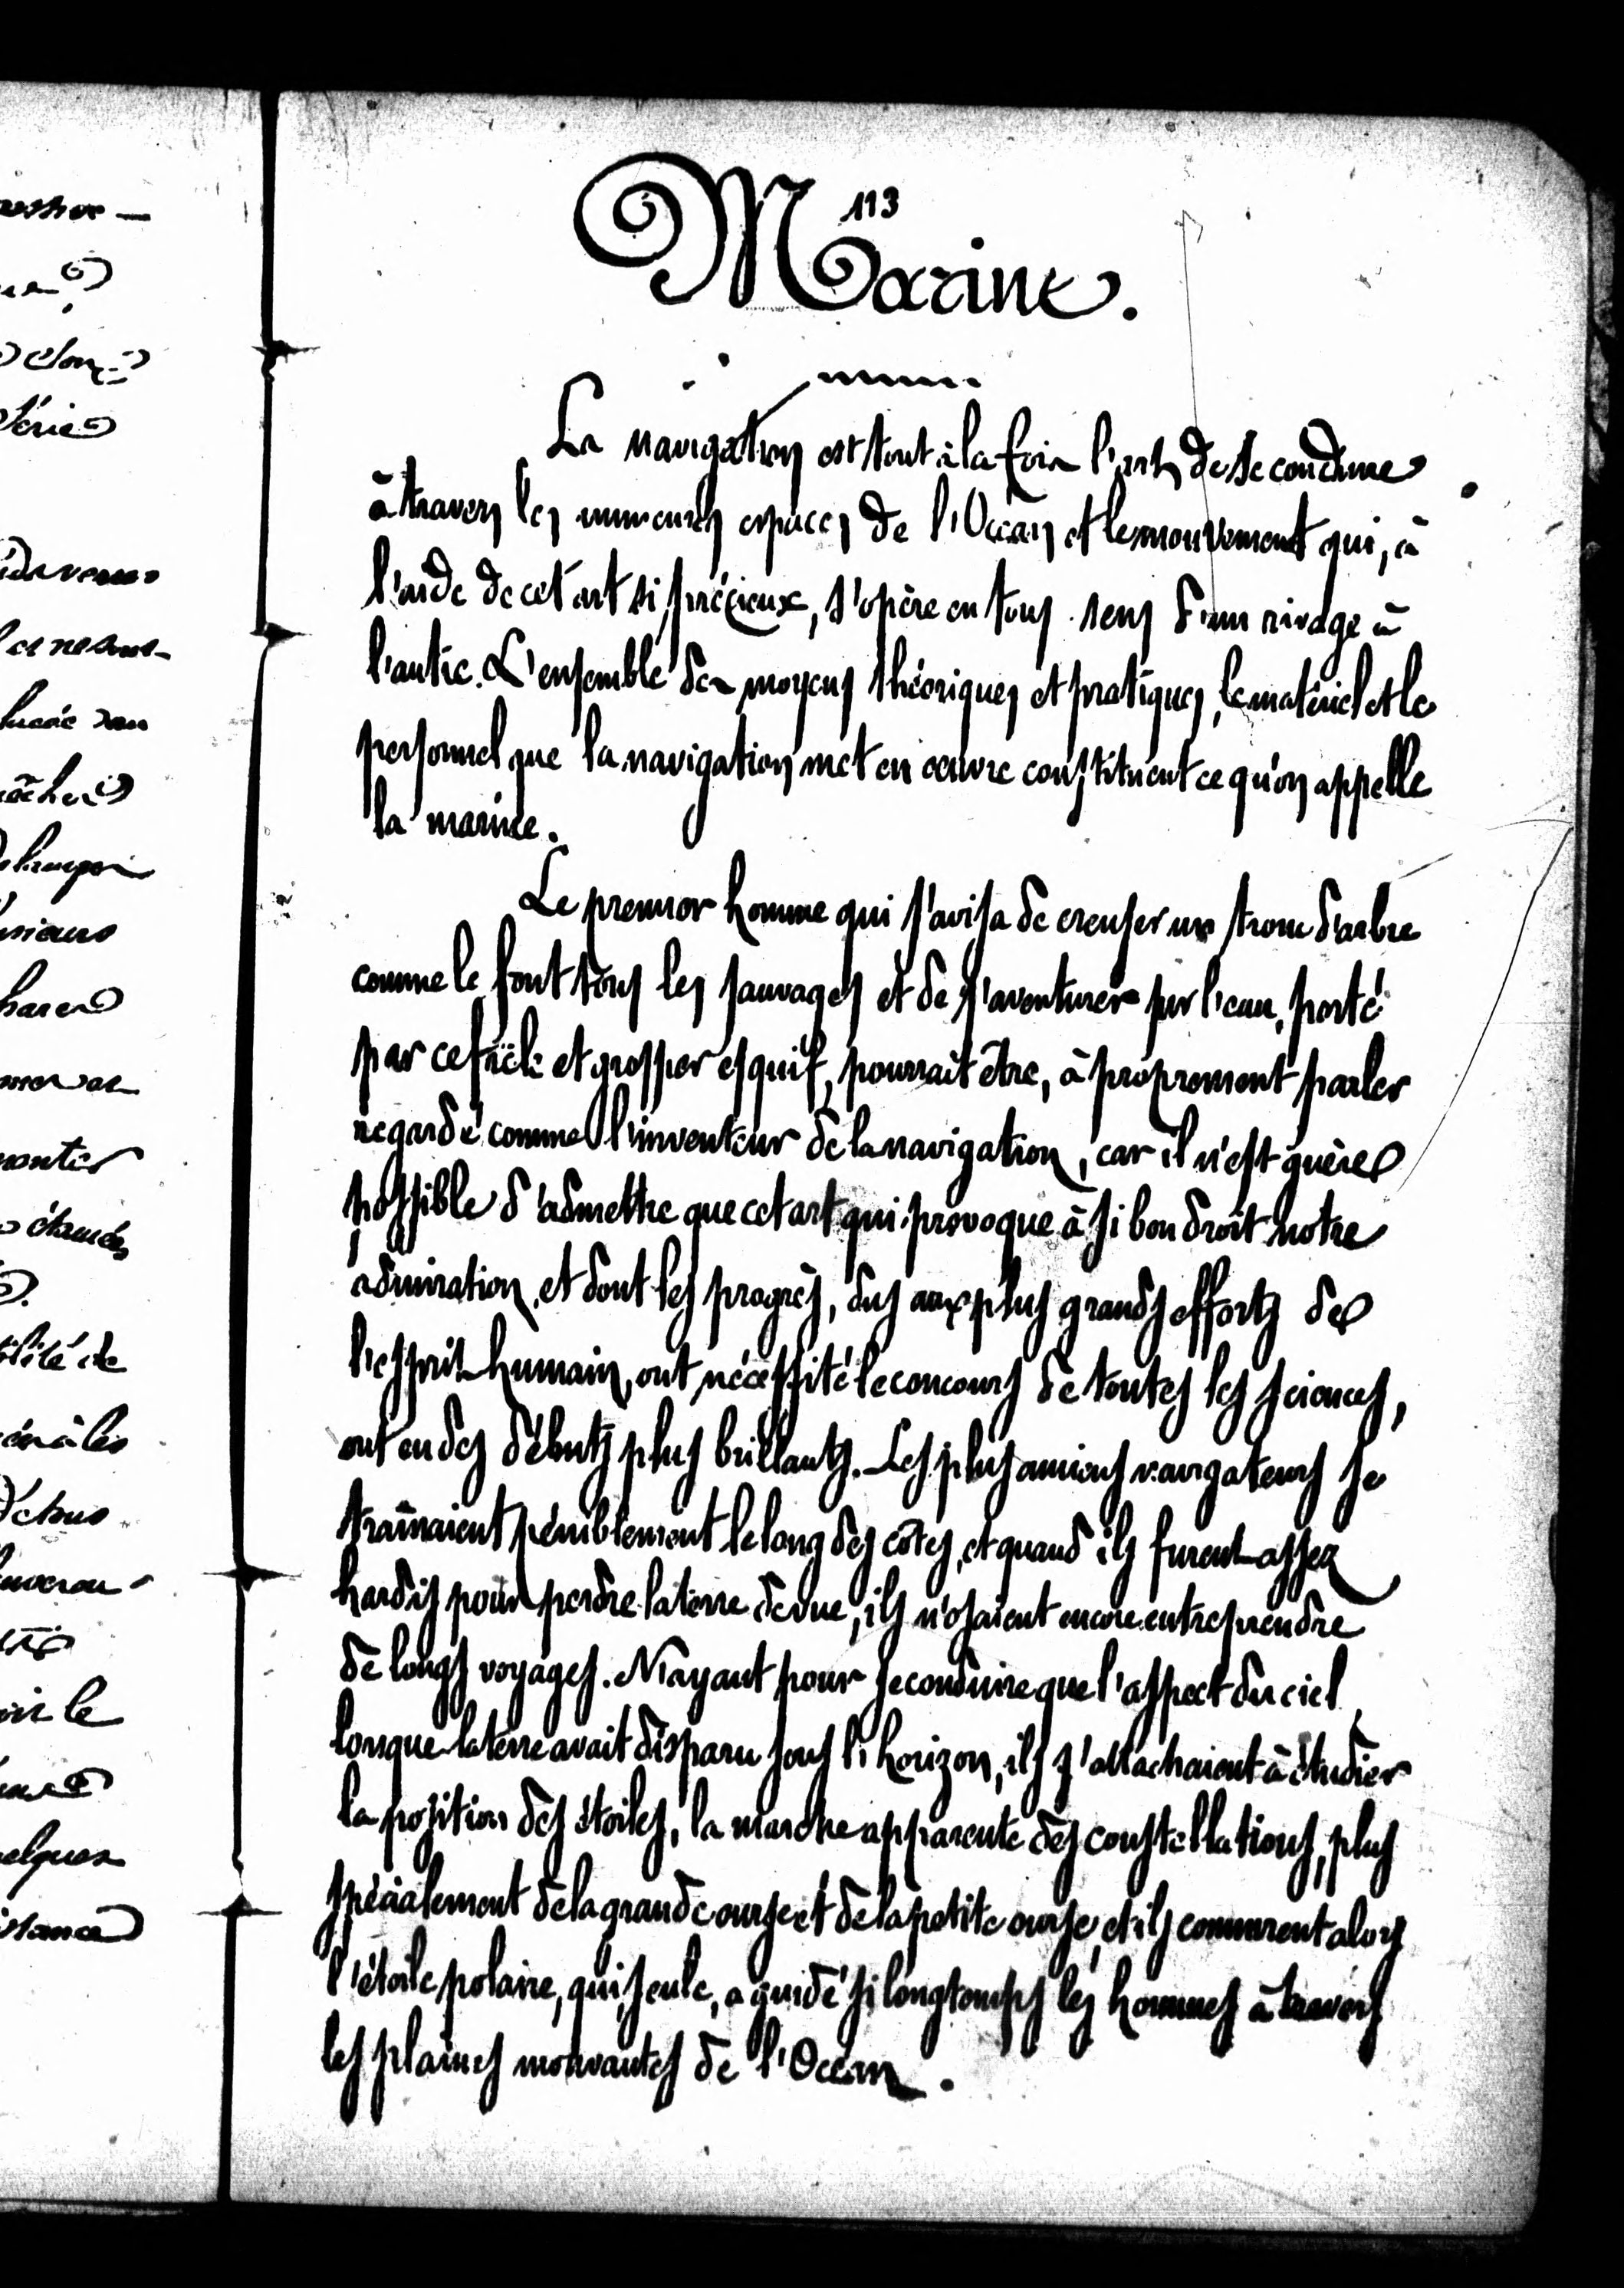 113
Marine.
La navigation est tout à la fois l'art de se conduire
à travers les immenses espaces de l'Océan et le mouvement qui, à
l'aide de cet art si précieux, s'opère en tous sens d'un rivage à
l'autre. L'ensemble des moyens théoriques et pratiques, le matériel et le
personnel que la navigation met en œuvre constituent ce qu'on appelle
la marine.
Le premier homme qui s'avisa de creuser un tronc d'arbre
comme le font tous les sauvages et de s'aventurer sur l'eau, porté
par ce frêle et grossier esquif, pourrait être, à proprement parler
regardé comme l'inventeur de la navigation, car il n'est guère
possible d'admettre que cet art qui provoque à si bon droit notre
admiration, et dont les progrès, dus aux plus grands efforts de
l'esprit humain, ont nécessité le concours de toutes les sciences,
ont eu des débuts plus brillants. Les plus anciens navigateurs se
traînaient péniblement le long des côtes, et quand ils furent assez
hardis pour perdre la terre de vue, ils n'osaient encore entreprendre
de longs voyages. N'ayant pour se conduire que l'aspect du ciel
lorsque la terre avait disparu sous l'horizon, ils s'attachaient à étudier
la position des étoiles, la marche apparente des constellations, plus
spécialement de la grande ourse et de la petite ourse, et ils connurent alors
l'étoile polaire, qui, seule, a guidé si longtemps les hommes à travers
les plaines mouvantes de l'Océan.